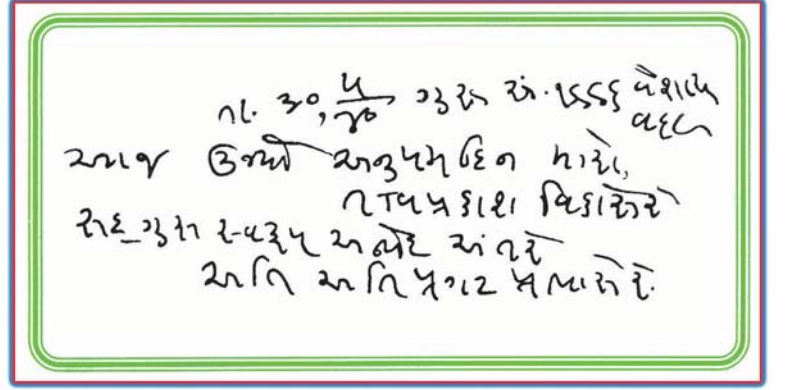 તા. ૩૦, ૫/૪૦ ગુરુ સં. ૧૯૯૬ વૈશાખ
વદ ૮
આજ ઉગ્યો અનુપમ દિન મારો,
તત્ત્વપ્રકાશ વિકાસેરે
સદ્ગુરુ સ્વરૂપ અભેદ અંતરે
અતિ અતિ પ્રગટ પ્રભાસેરે.